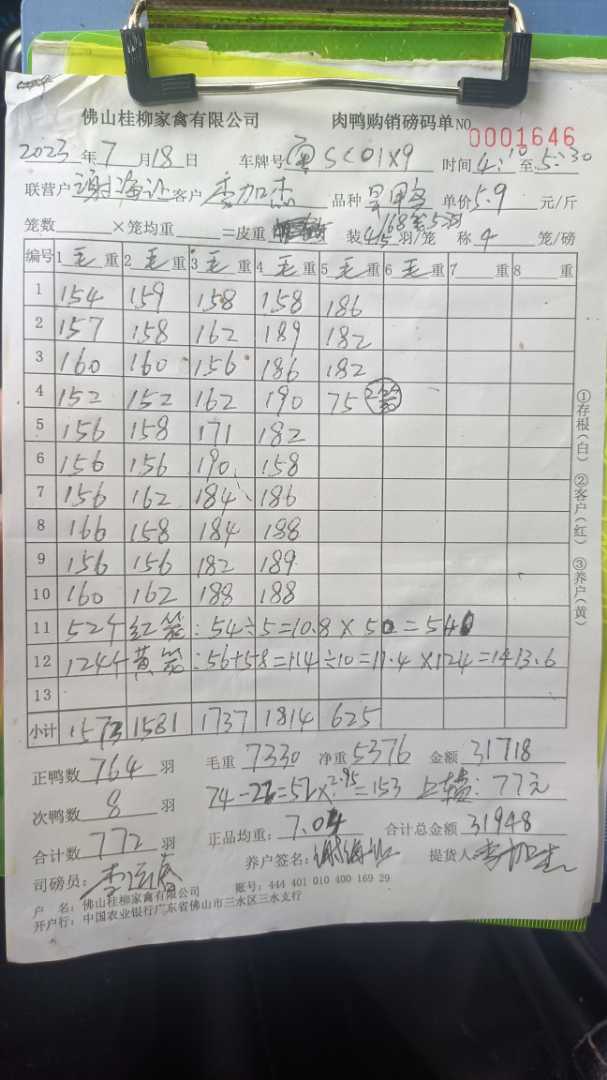 佛山桂柳家禽有限公司 肉鸭购销磅码单NO 0001646
2023年7月18日 车牌号 SC01X9 时间4:10至5:30
联营户 谢海 客户 李加杰 品种 单价5.9元/斤
笼数 ×笼均重 =皮重 装4/5羽/笼 称4笼/磅
编号 1毛重 2毛重 3毛重 4毛重 5毛重 6毛重 7 重 8 重
1 154 159 158 158 186
2 157 158 162 189 182
3 160 160 156 186 182
4 152 152 162 190 75
5 156 158 171 182
6 156 156 190 158
7 156 162 184 186
8 166 158 184 188
9 156 156 182 189
10 160 162 188 188
11 52个红笼:54÷5=10.8×50=540
12 124个黄笼:56+58=114÷10=11.4×124=1413.6
13
小计 1573 1581 1737 1814 625
正鸭数 764 羽 毛重 7330 净重 5376 金额 31718
次鸭数 8 羽 74-22=52×2.95=153 77元
合计数 772 羽 正品均重: 7.04 合计总金额 31948
司磅员: 养户签名: 谢海 提货人 李加杰
户 名: 佛山桂柳家禽有限公司 账号: 444 401 010 400 169 29
开户行: 中国农业银行广东省佛山市三水区三水支行
①存根(白) ②客户(红) ③养户(黄)